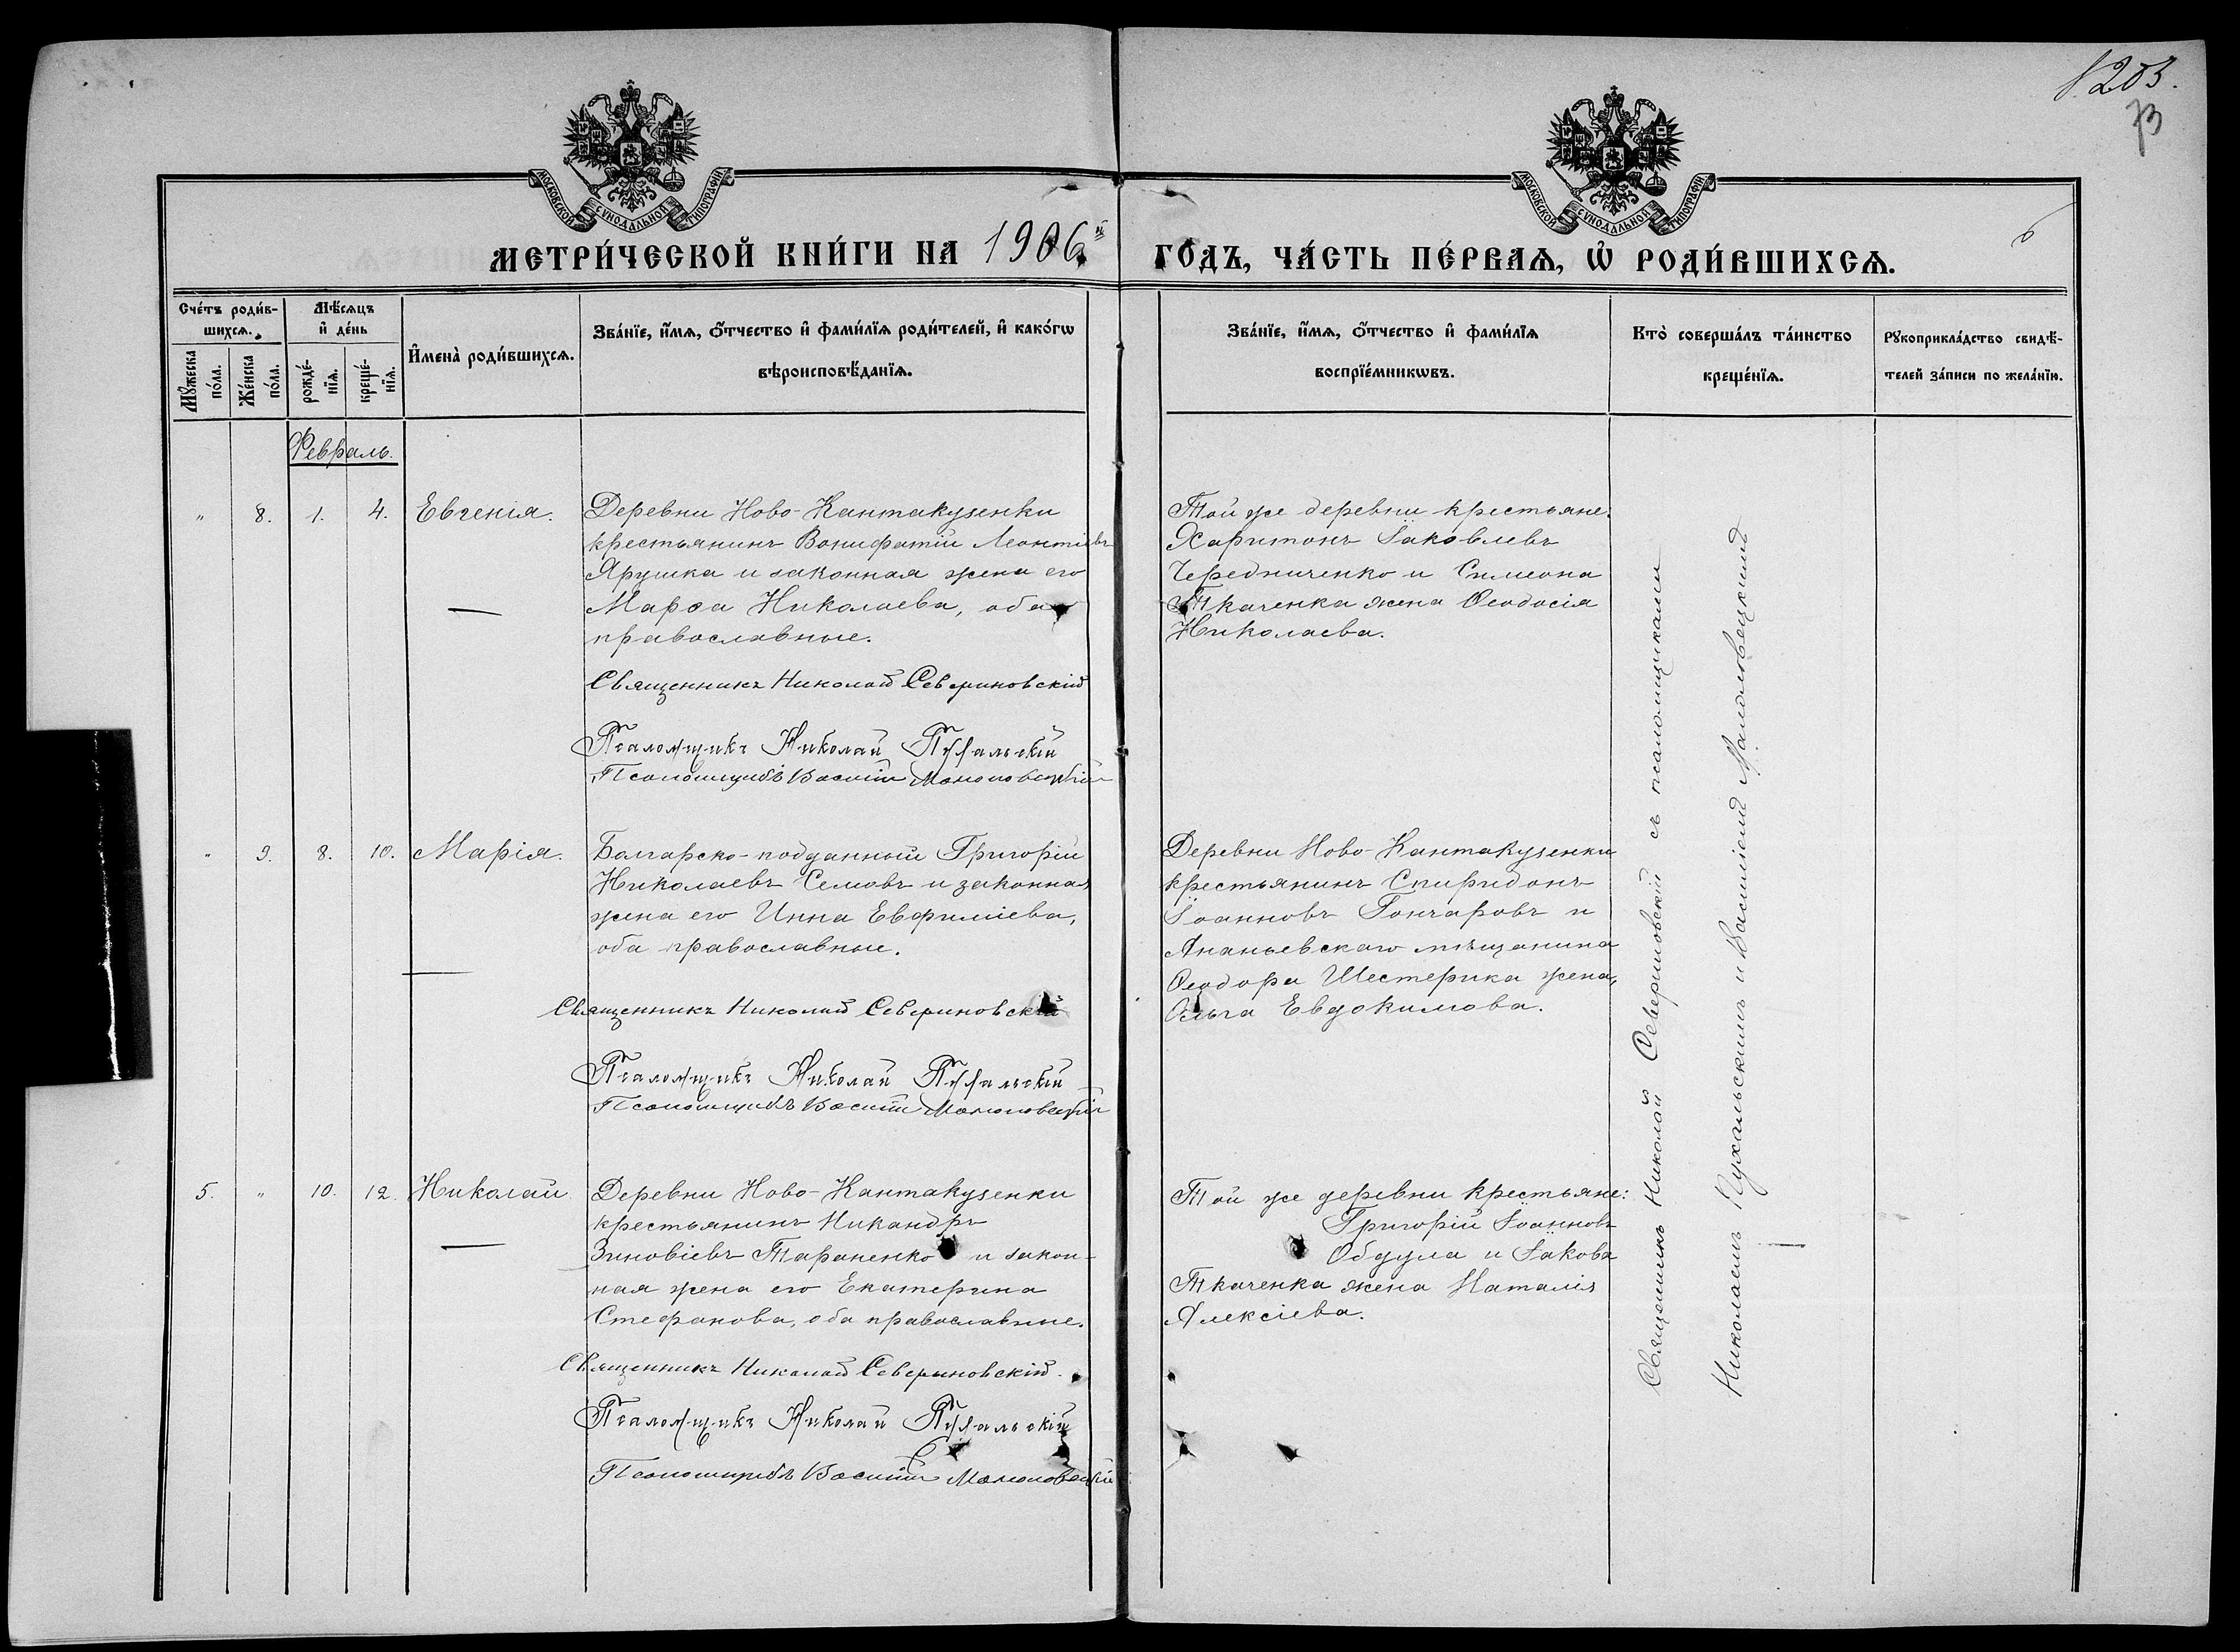 1203.
73
МОСКОВСКОЙ СѴНОДАЛЬНОЙ ТИПОГРАФІИ
МОСКОВСКОЙ СѴНОДАЛЬНОЙ ТИПОГРАФІИ
МЕТРИ́ЧЕСКОЙ КНИ́ГИ НА 1906й ГО́ДЪ, ЧА́СТЬ ПЕ́РВАѦ, Ѡ҆ РОДИ́ВШИХСѦ.
6
Сче́тъ роди́в-
шихсѧ.
Мꙋ́жеска по́ла.
Же́нска по́ла.
Мѣ́сѧцъ
и҆ де́нь
рожде́-нїѧ.
креще́-нїѧ.
И҆мена̀ роди́вшихсѧ.
Зва́нїе, и҆́мѧ, ѻ҆́тчество и҆ фами́лїѧ роди́телей, и҆ како́гѡ
вѣроисповѣ́данїѧ.
Зва́нїе, и҆́мѧ, ѻ҆́тчество и҆ фами́лїѧ
воспрїе́мникѡвъ.
Кто̀ соверша́лъ та́инство
креще́нїѧ.
Рꙋкоприкла́дство свидѣ́-
телей за́писи по жела́нїю.
Февраль.
" 8. 1. 4. Евгенія.
Деревни Ново-Кантакузенки
крестьянинъ Вонифатій Леонтіевъ
Ярушка и законная жена его
Марѳа Николаева, оба
православные.
Священникъ Николай Севериновскій
Псаломщикъ Николай Пухальскій
Псаломщикъ Василій Малоловецкій
Той же деревни крестьяне:
Харитонъ Іаковлевъ
Чередниченко и Симеона
Ткаченка жена Ѳеодосія
Николаева.
" 9. 8. 10. Марія.
Болгарско-подданный Григорій
Николаевъ Семовъ и законная
жена его Инна Евфиміева,
оба православные.
Священникъ Николай Севериновскій
Псаломщикъ Николай Пухальскій
Псаломщикъ Василій Малоловецкій
Деревни Ново-Кантакузенки
крестьянинъ Спиридонъ
Іоанновъ Гончаровъ и
Ананьевскаго мѣщанина
Ѳеодора Шестерика жена,
Ольга Евдокимова.
5. " 10. 12. Николай
Деревни Ново-Кантакузенки
крестьянинъ Никандръ
Зиновіевъ Тараненко и закон-
ная жена его Екатерина
Стефанова, оба православные.
Священникъ Николай Севериновскій.
Псаломщикъ Николай Пухальскій
Псаломщикъ Василій Малоловецкій
Той же деревни крестьяне:
Григорій Іоанновъ
Обдула и Іакова
Ткаченка жена Наталія
Алексіева.
Священникъ Николай Севериновскій съ псаломщиками
Николаемъ Пухальскимъ и Василіемъ Малоловецкимъ